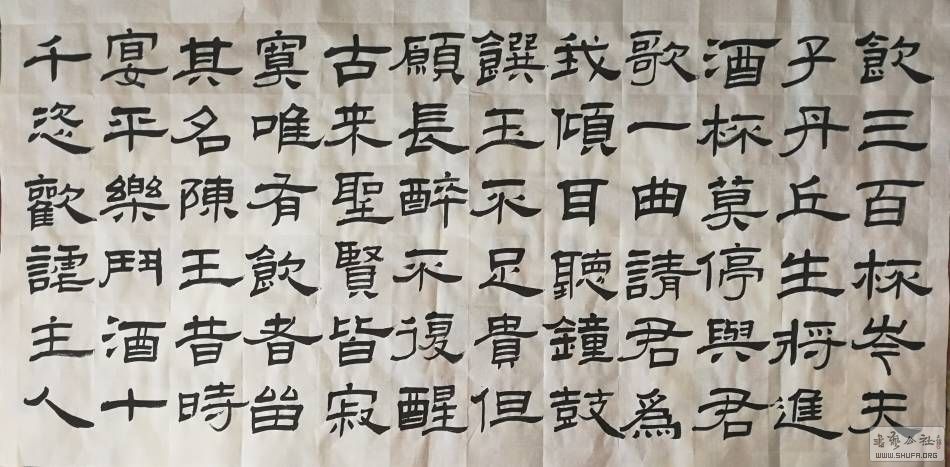 飲三百杯岑夫
子丹丘生將進
酒杯莫停與君
歌一曲請君爲
我傾耳聽鐘鼓
饌玉不足貴但
願長醉不復醒
古来聖賢皆寂
寞唯有飲者留
其名陳王昔時
宴平樂鬥酒十
千恣歡謔主人
WWW.SHUFA.ORG